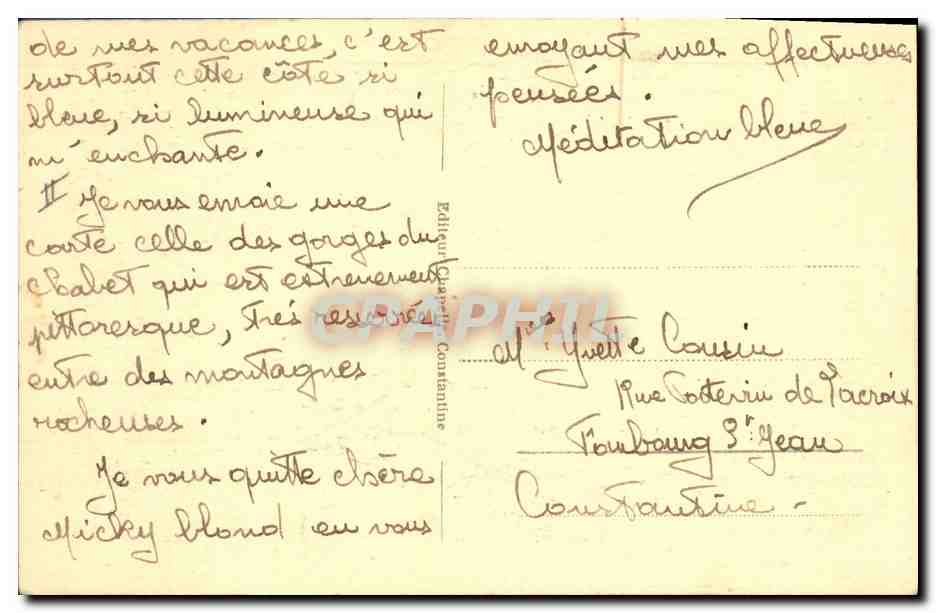 de mes vacances, c'est
surtout cette côté si
bleue, si lumineuse qui
m'enchante.
II Je vous envoie une
carte celle des gorges du
Chabet qui est extrêmement
pittoresque, très resserrées
entre des montagnes
rocheuses.
Je vous quitte chère
Micky blond en vous
envoyant mes affectueuses
pensées.
Méditation bleue
Editeur Chapelle Constantine
CPAPHIL
Yvette Cousin
Rue de Lacroix
Faubourg St Jean
Constantine -